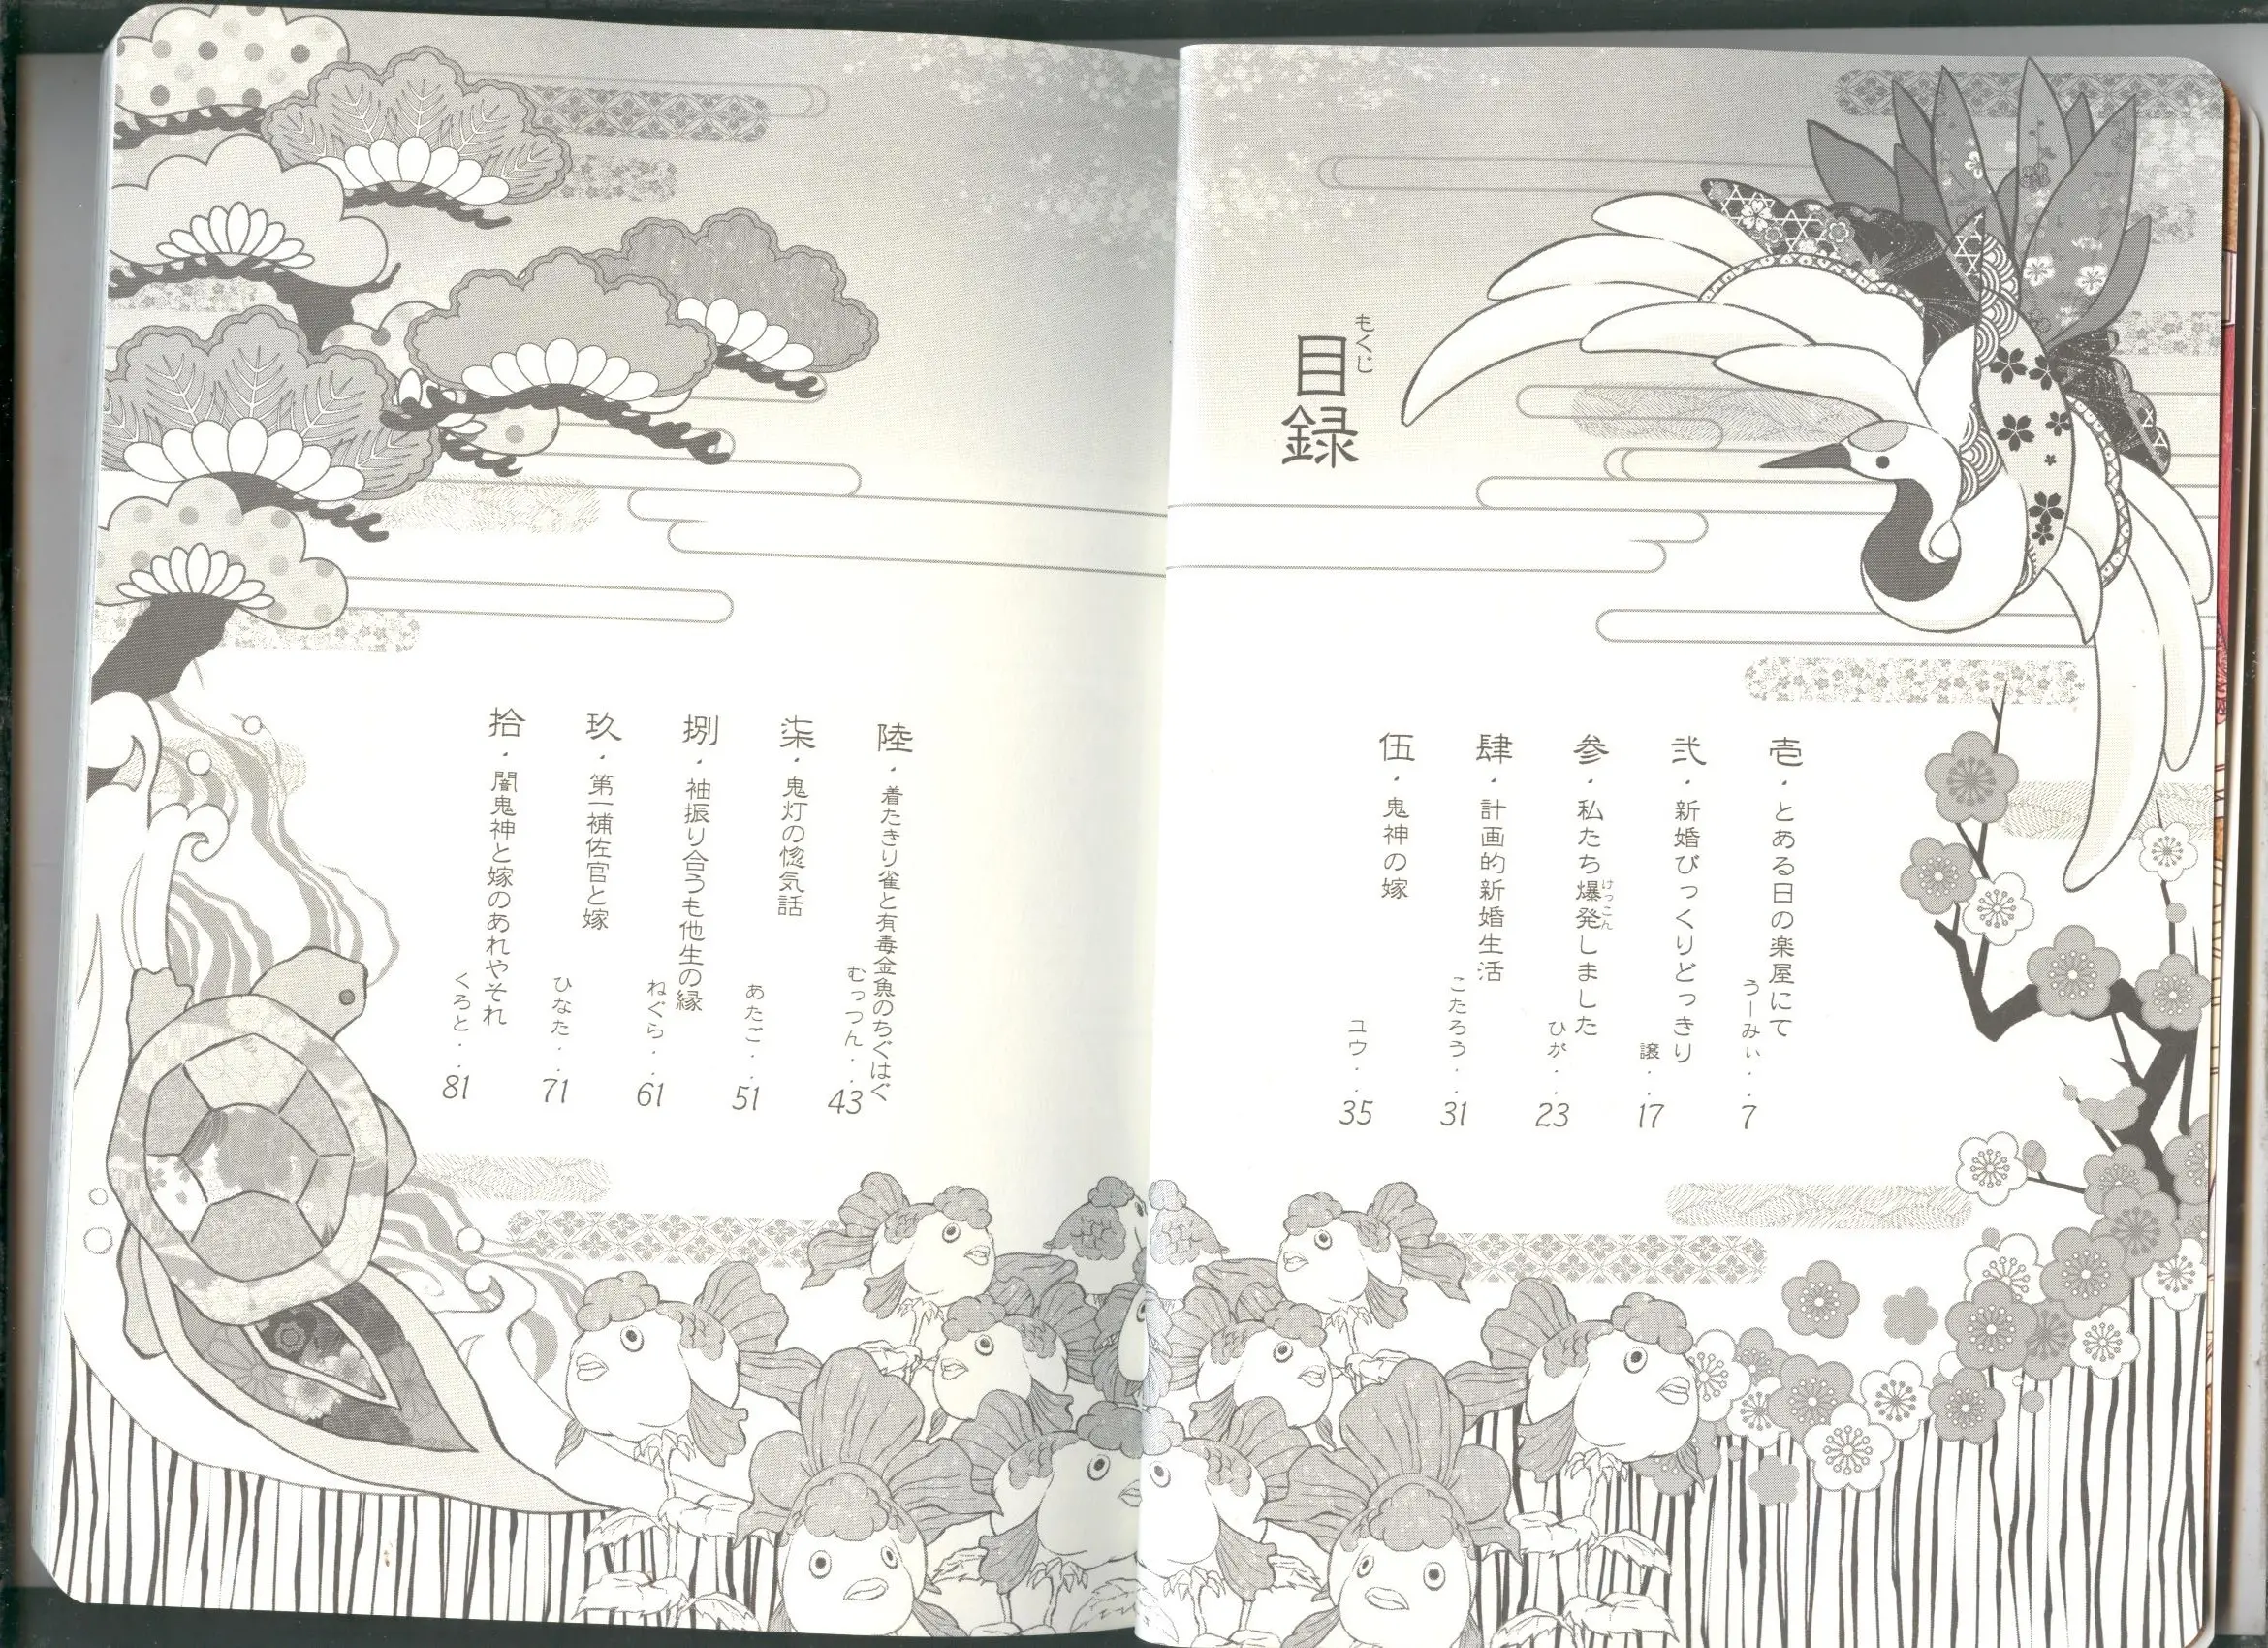 目録
もくじ
壱・とある日の楽屋にて
うーみぃ・・7
弐・新婚びっくりどっきり
譲・・17
参・私たち爆発しました
けっこん
ひが・・23
肆・計画的新婚生活
こたろう・・31
伍・鬼神の嫁
ユウ・・35
陸・着たきり雀と有毒金魚のちぐはぐ
むっつん・・43
柒・鬼灯の惚気話
あたご・・51
捌・袖振り合うも他生の縁
ねぐら・・61
玖・第一補佐官と嫁
ひなた・・71
拾・闇鬼神と嫁のあれやそれ
くろと・・81